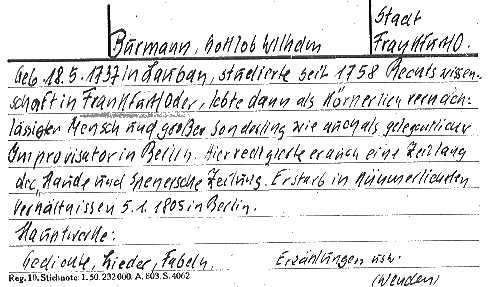 Stadt
Burmann, Gottlob Wilhelm Frankfurt/O.
Geb. 18.5.1737 in Lauban, studierte seit 1758 Rechtswissen-
schaft in Frankfurt/Oder, lebte dann als körperlich vernach-
lässigter Mensch und großer Sonderling wie auch als gelegentlicher
Improvisator in Berlin. Hier redigierte er auch eine Zeitlang
die "Haude und Spenersche Zeitung. Er starb in kümmerlichsten
Verhältnissen 5.1.1805 in Berlin.
Hauptwerke:
Gedichte, Lieder, Fabeln, Erzählungen usw.
Reg. 10. Stichnote 1. 50. 232000. A. 803. S. 4062 (wenden)